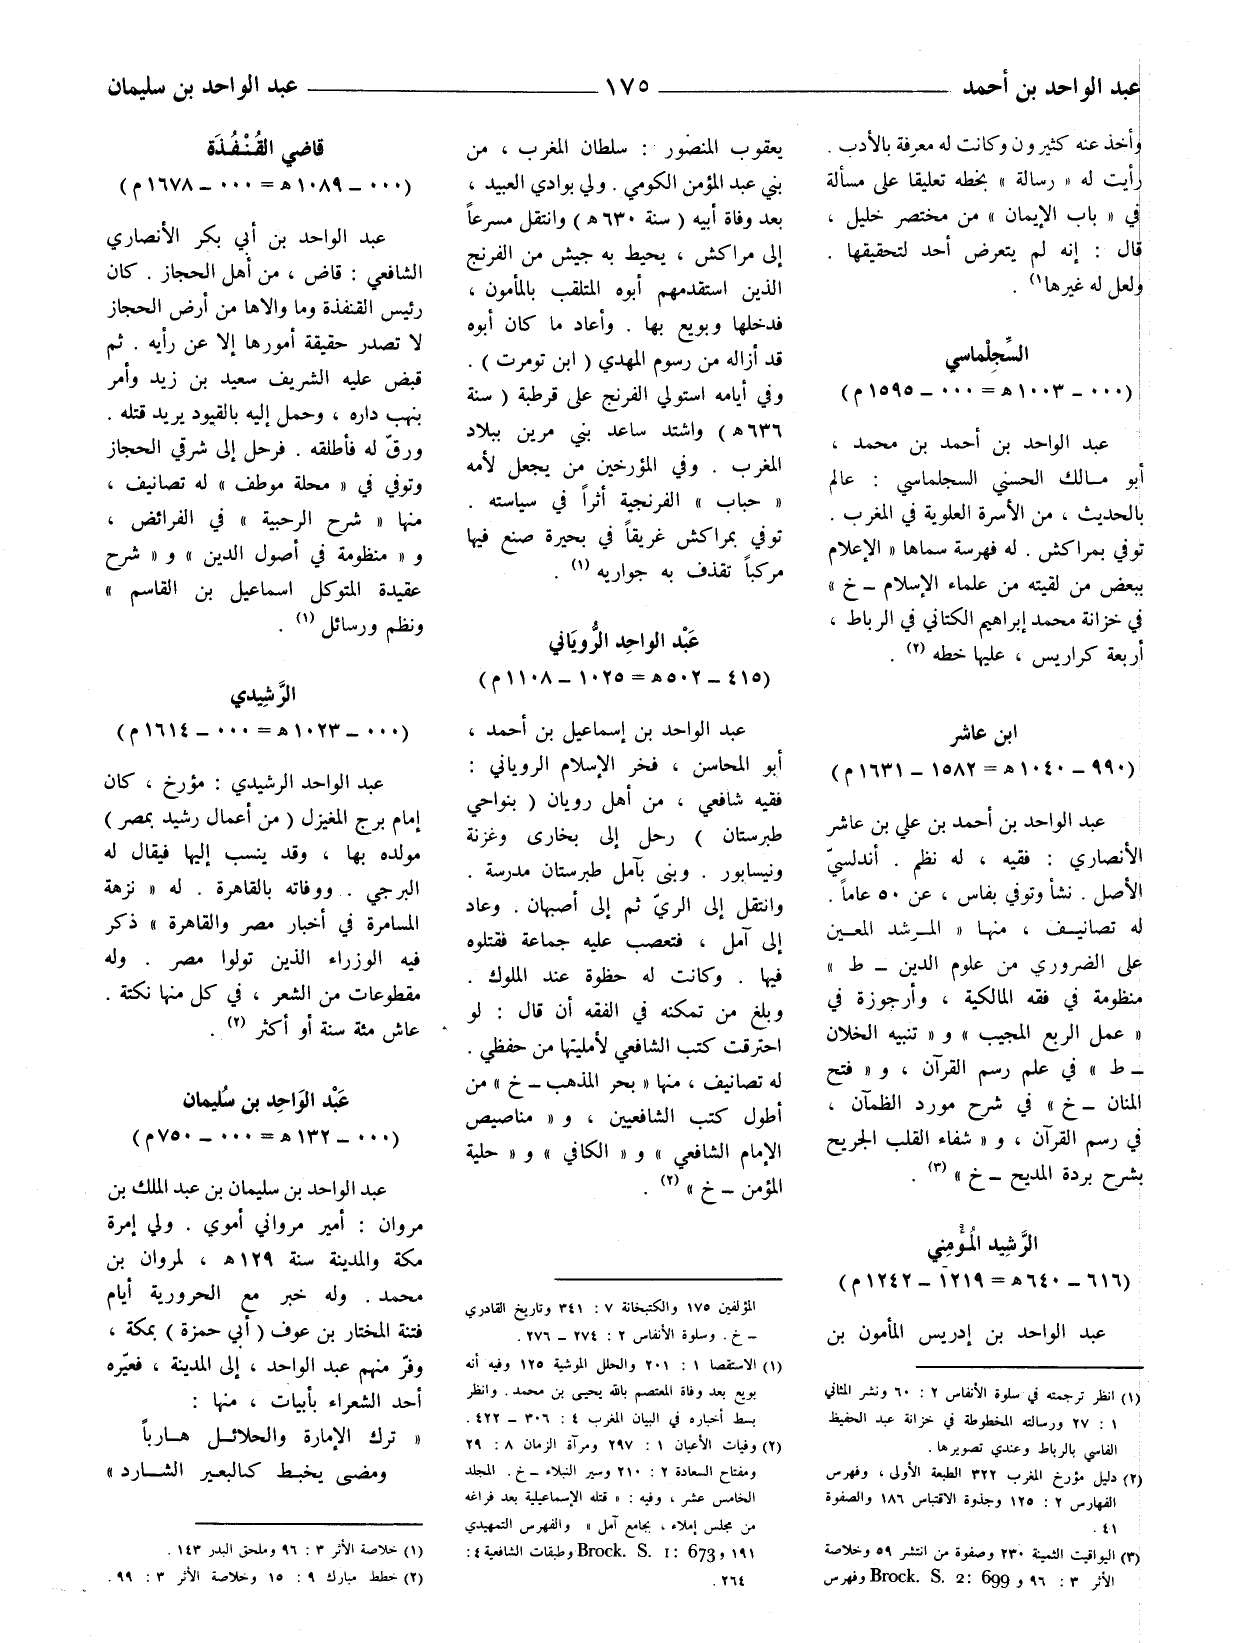 عبد الواحد بن أحمد ــــــ ١٧٥ ــــــ عبد الواحد بن سليمان
وأخذ عنه كثيرون وكانت له معرفة بالأدب .
رأيت له « رسالة » بخطه تعليقا على مسألة
في « باب الإيمان » من مختصر خليل ،
قال : إنه لم يتعرض أحد لتحقيقها .
ولعل له غيرها (١) .
السِّجِلْماسي
(٠٠٠ ــ ١٠٠٣ هـ = ٠٠٠ ــ ١٥٩٥ م)
عبد الواحد بن أحمد بن محمد ،
أبو مالك الحسني السجلماسي : عالم
بالحديث ، من الأسرة العلوية في المغرب .
توفي بمراكش . له فهرسة سماها « الإعلام
ببعض من لقيته من علماء الإسلام ــ خ »
في خزانة محمد إبراهيم الكتاني في الرباط ،
أربعة كراريس ، عليها خطه (٢) .
ابن عاشر
(٩٩٠ ــ ١٠٤٠ هـ = ١٥٨٢ ــ ١٦٣١ م)
عبد الواحد بن أحمد بن علي بن عاشر
الأنصاري : فقيه ، له نظم . أندلسيّ
الأصل . نشأ وتوفي بفاس ، عن ٥٠ عاماً .
له تصانيف ، منها « المرشد المعين
على الضروري من علوم الدين ــ ط »
منظومة في فقه المالكية ، وأرجوزة في
« عمل الربع المجيب » و « تنبيه الخلان
ــ ط » في علم رسم القرآن ، و « فتح
المنان ــ خ » في شرح مورد الظمآن ،
في رسم القرآن ، و « شفاء القلب الجريح
بشرح بردة المديح ــ خ » (٣) .
الرَّشِيد المُؤْمِني
(٦١٦ ــ ٦٤٠ هـ = ١٢١٩ ــ ١٢٤٢ م)
عبد الواحد بن إدريس المأمون بن
(١) انظر ترجمته في سلوة الأنفاس ٢ : ٦٠ ونشر المثاني
١ : ٢٧ ورسالته المخطوطة في خزانة عبد الحفيظ
الفاسي بالرباط وعندي تصويرها .
(٢) دليل مؤرخ المغرب ٣٢٢ الطبعة الأولى ، وفهرس
الفهارس ٢ : ١٢٥ وجذوة الاقتباس ١٨٦ والصفوة
٤١ .
(٣) اليواقيت الثمينة ٢٣٠ وصفوة من انتشر ٥٩ وخلاصة
الأثر ٣ : ٩٦ و Brock. S. 2: 699 وفهرس
يعقوب المنصور : سلطان المغرب ، من
بني عبد المؤمن الكومي . ولي بوادي العبيد ،
بعد وفاة أبيه ( سنة ٦٣٠ هـ ) وانتقل مسرعاً
إلى مراكش ، يحيط به جيش من الفرنج
الذين استقدمهم أبوه المتلقب بالمأمون ،
فدخلها وبويع بها . وأعاد ما كان أبوه
قد أزاله من رسوم المهدي ( ابن تومرت ) .
وفي أيامه استولي الفرنج على قرطبة ( سنة
٦٣٦ هـ ) واشتد ساعد بني مرين ببلاد
المغرب . وفي المؤرخين من يجعل لأمه
« حباب » الفرنجية أثراً في سياسته .
توفي بمراكش غريقاً في بحيرة صنع فيها
مركباً تقذف به جواريه (١) .
عَبْد الواحِد الرُّويَاني
(٤١٥ ــ ٥٠٢ هـ = ١٠٢٥ ــ ١١٠٨ م)
عبد الواحد بن إسماعيل بن أحمد ،
أبو المحاسن ، فخر الإسلام الروياني :
فقيه شافعي ، من أهل رويان ( بنواحي
طبرستان ) رحل إلى بخارى وغزنة
ونيسابور . وبنى بآمل طبرستان مدرسة .
وانتقل إلى الريّ ثم إلى أصبهان . وعاد
إلى آمل ، فتعصب عليه جماعة فقتلوه
فيها . وكانت له حظوة عند الملوك .
وبلغ من تمكنه في الفقه أن قال : لو
احترقت كتب الشافعي لأمليتها من حفظي .
له تصانيف ، منها « بحر المذهب ــ خ » من
أطول كتب الشافعيين ، و « مناصيص
الإمام الشافعي » و « الكافي » و « حلية
المؤمن ــ خ » (٢) .
المؤلفين ١٧٥ والكتبخانة ٧ : ٣٤١ وتاريخ القادري
ــ خ . وسلوة الأنفاس ٢ : ٢٧٤ ــ ٢٧٦ .
(١) الاستقصا ١ : ٢٠١ والحلل الموشية ١٢٥ وفيه أنه
بويع بعد وفاة المعتصم بالله يحيى بن محمد . وانظر
بسط أخباره في البيان المغرب ٤ : ٣٠٦ ــ ٤٢٢ .
(٢) وفيات الأعيان ١ : ٢٩٧ ومرآة الزمان ٨ : ٢٩
ومفتاح السعادة ٢ : ٢١٠ وسير النبلاء ــ خ . المجلد
الخامس عشر ، وفيه : « قتله الإسماعيلية بعد فراغه
من مجلس إملاء ، بجامع آمل » والفهرس التمهيدي
١٩١ و Brock. S. 1: 673 وطبقات الشافعية ٤ :
٢٦٤ .
قاضي القُنْفُذَة
(٠٠٠ ــ ١٠٨٩ هـ = ٠٠٠ ــ ١٦٧٨ م)
عبد الواحد بن أبي بكر الأنصاري
الشافعي : قاض ، من أهل الحجاز . كان
رئيس القنفذة وما والاها من أرض الحجاز
لا تصدر حقيقة أمورها إلا عن رأيه . ثم
قبض عليه الشريف سعيد بن زيد وأمر
بنهب داره ، وحمل إليه بالقيود يريد قتله .
ورقّ له فأطلقه . فرحل إلى شرقي الحجاز
وتوفي في « محلة موطف » له تصانيف ،
منها « شرح الرحبية » في الفرائض ،
و « منظومة في أصول الدين » و « شرح
عقيدة المتوكل اسماعيل بن القاسم »
ونظم ورسائل (١) .
الرَّشِيدي
(٠٠٠ ــ ١٠٢٣ هـ = ٠٠٠ ــ ١٦١٤ م)
عبد الواحد الرشيدي : مؤرخ ، كان
إمام برج المغيزل ( من أعمال رشيد بمصر )
مولده بها ، وقد ينسب إليها فيقال له
البرجي . ووفاته بالقاهرة . له « نزهة
المسامرة في أخبار مصر والقاهرة » ذكر
فيه الوزراء الذين تولوا مصر . وله
مقطوعات من الشعر ، في كل منها نكتة .
عاش مئة سنة أو أكثر (٢) .
عَبْد الوَاحِد بن سُليمان
(٠٠٠ ــ ١٣٢ هـ = ٠٠٠ ــ ٧٥٠ م)
عبد الواحد بن سليمان بن عبد الملك بن
مروان : أمير مرواني أموي . ولي إمرة
مكة والمدينة سنة ١٢٩ هـ ، لمروان بن
محمد . وله خبر مع الحرورية أيام
فتنة المختار بن عوف ( أبي حمزة ) بمكة ،
وفرّ منهم عبد الواحد ، إلى المدينة ، فعيّره
أحد الشعراء بأبيات ، منها :
« ترك الإمارة والحلائل هارباً
ومضى يخبط كالبعير الشارد »
(١) خلاصة الأثر ٣ : ٩٦ وملحق البدر ١٤٣ .
(٢) خطط مبارك ٩ : ١٥ وخلاصة الأثر ٣ : ٩٩ .